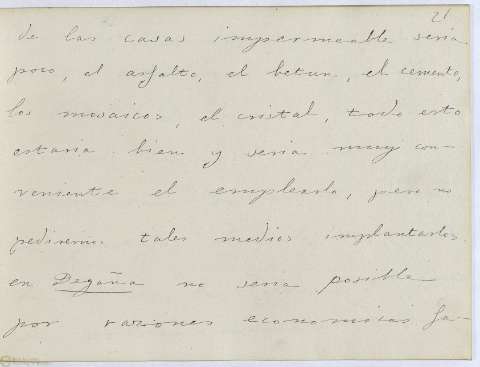 21
de las casas impermeable seria
poco, el asfalto, el betun, el cemento,
los mosaicos, el cristal, todo esto
estaria bien y seria muy con-
veniente el emplearlo, pero no
pediremos tales medios implantarlos
en Degaña no seria posible
por razones economicas fa-